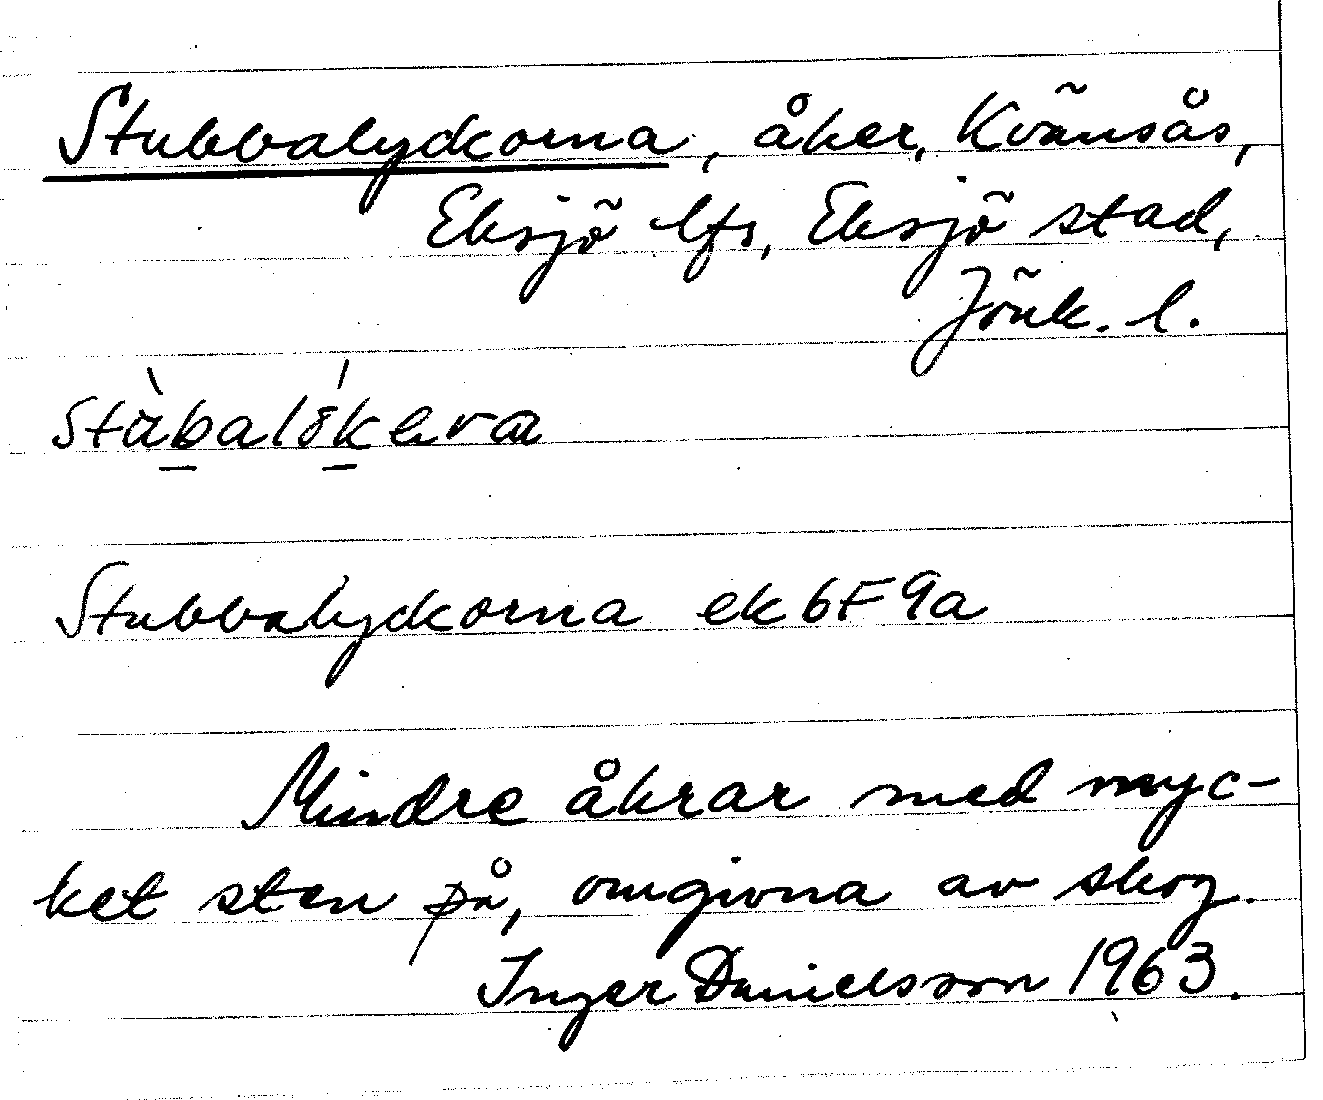 Stubbalyckorna, åker, Kvänsås,
Eksjö lfs, Eksjö stad,
Jönk. l.
Stubbalyckorna ek 6F 9a
Mindre åkrar med myc-
ket sten på, omgivna av skog.
Inger Danielsson 1963.